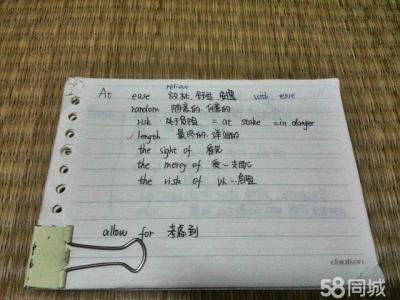 relieve
At ease 放松,舒适 with ease
random 随意的,任意的
risk 处于危险 = at stake = in danger
length 最终的,详细的
the sight of 看见
the mercy of 受…支配
the risk of 以…危险
allow for 考虑到
58同城